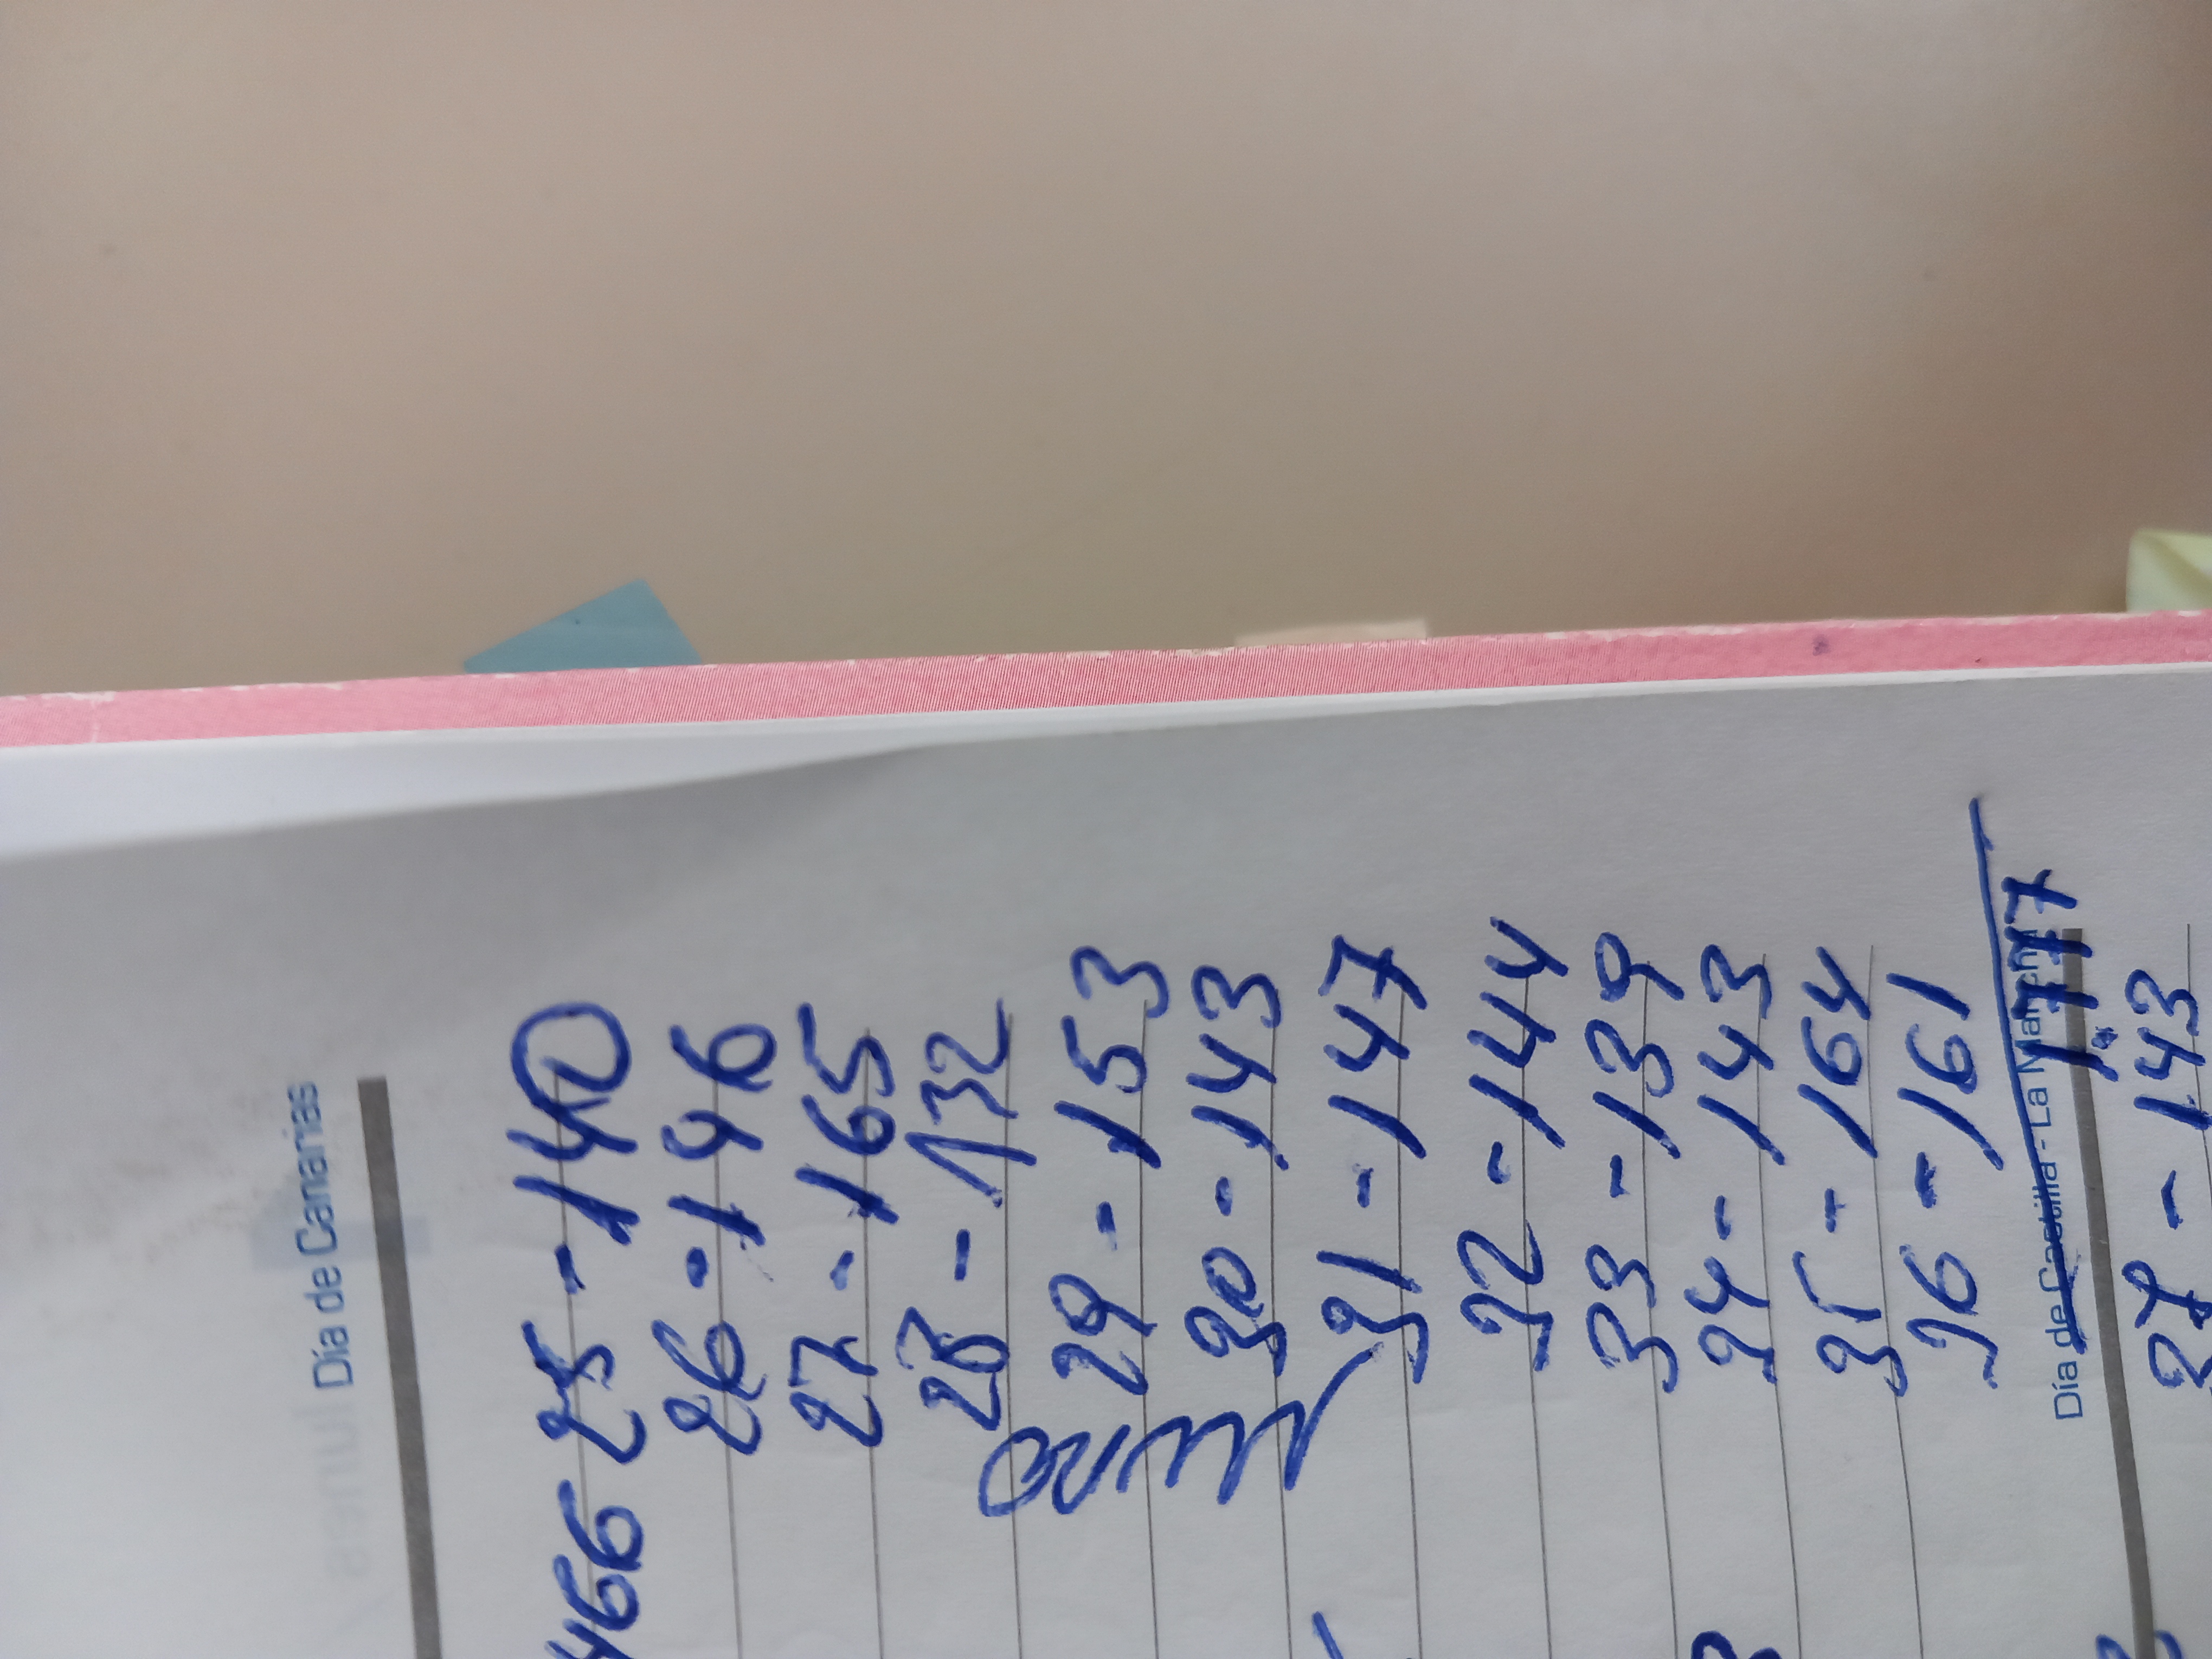 Día de Canarias
466 25 - 140
26 - 146
27 - 165
28 - 132
29 - 153
30 - 143
31 - 147
32 - 144
33 - 139
34 - 143
35 - 164
36 - 161
Día de Castilla - La Mancha
1.777
37 - 143